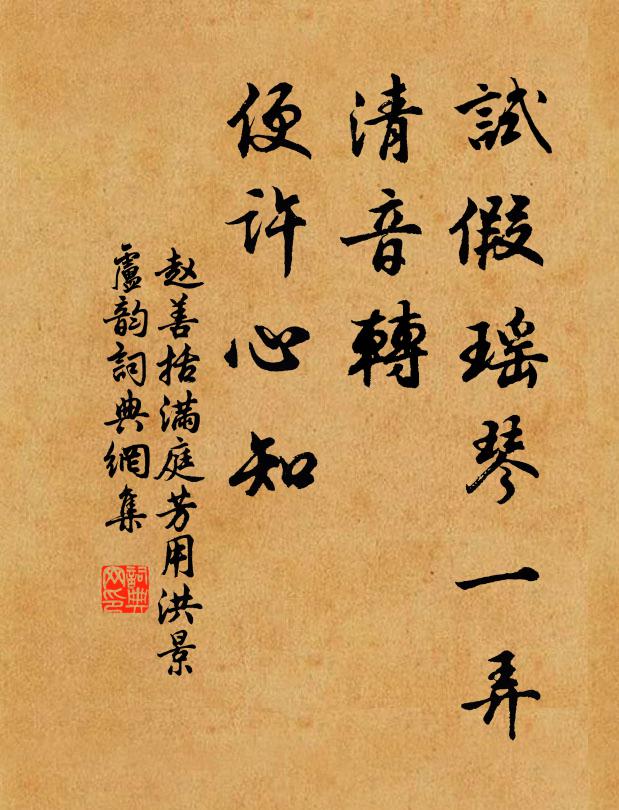 試假瑶琴一弄
清音轉
便许心知
赵善括满庭芳用洪景
盧韵詞典網集
詞典
网印